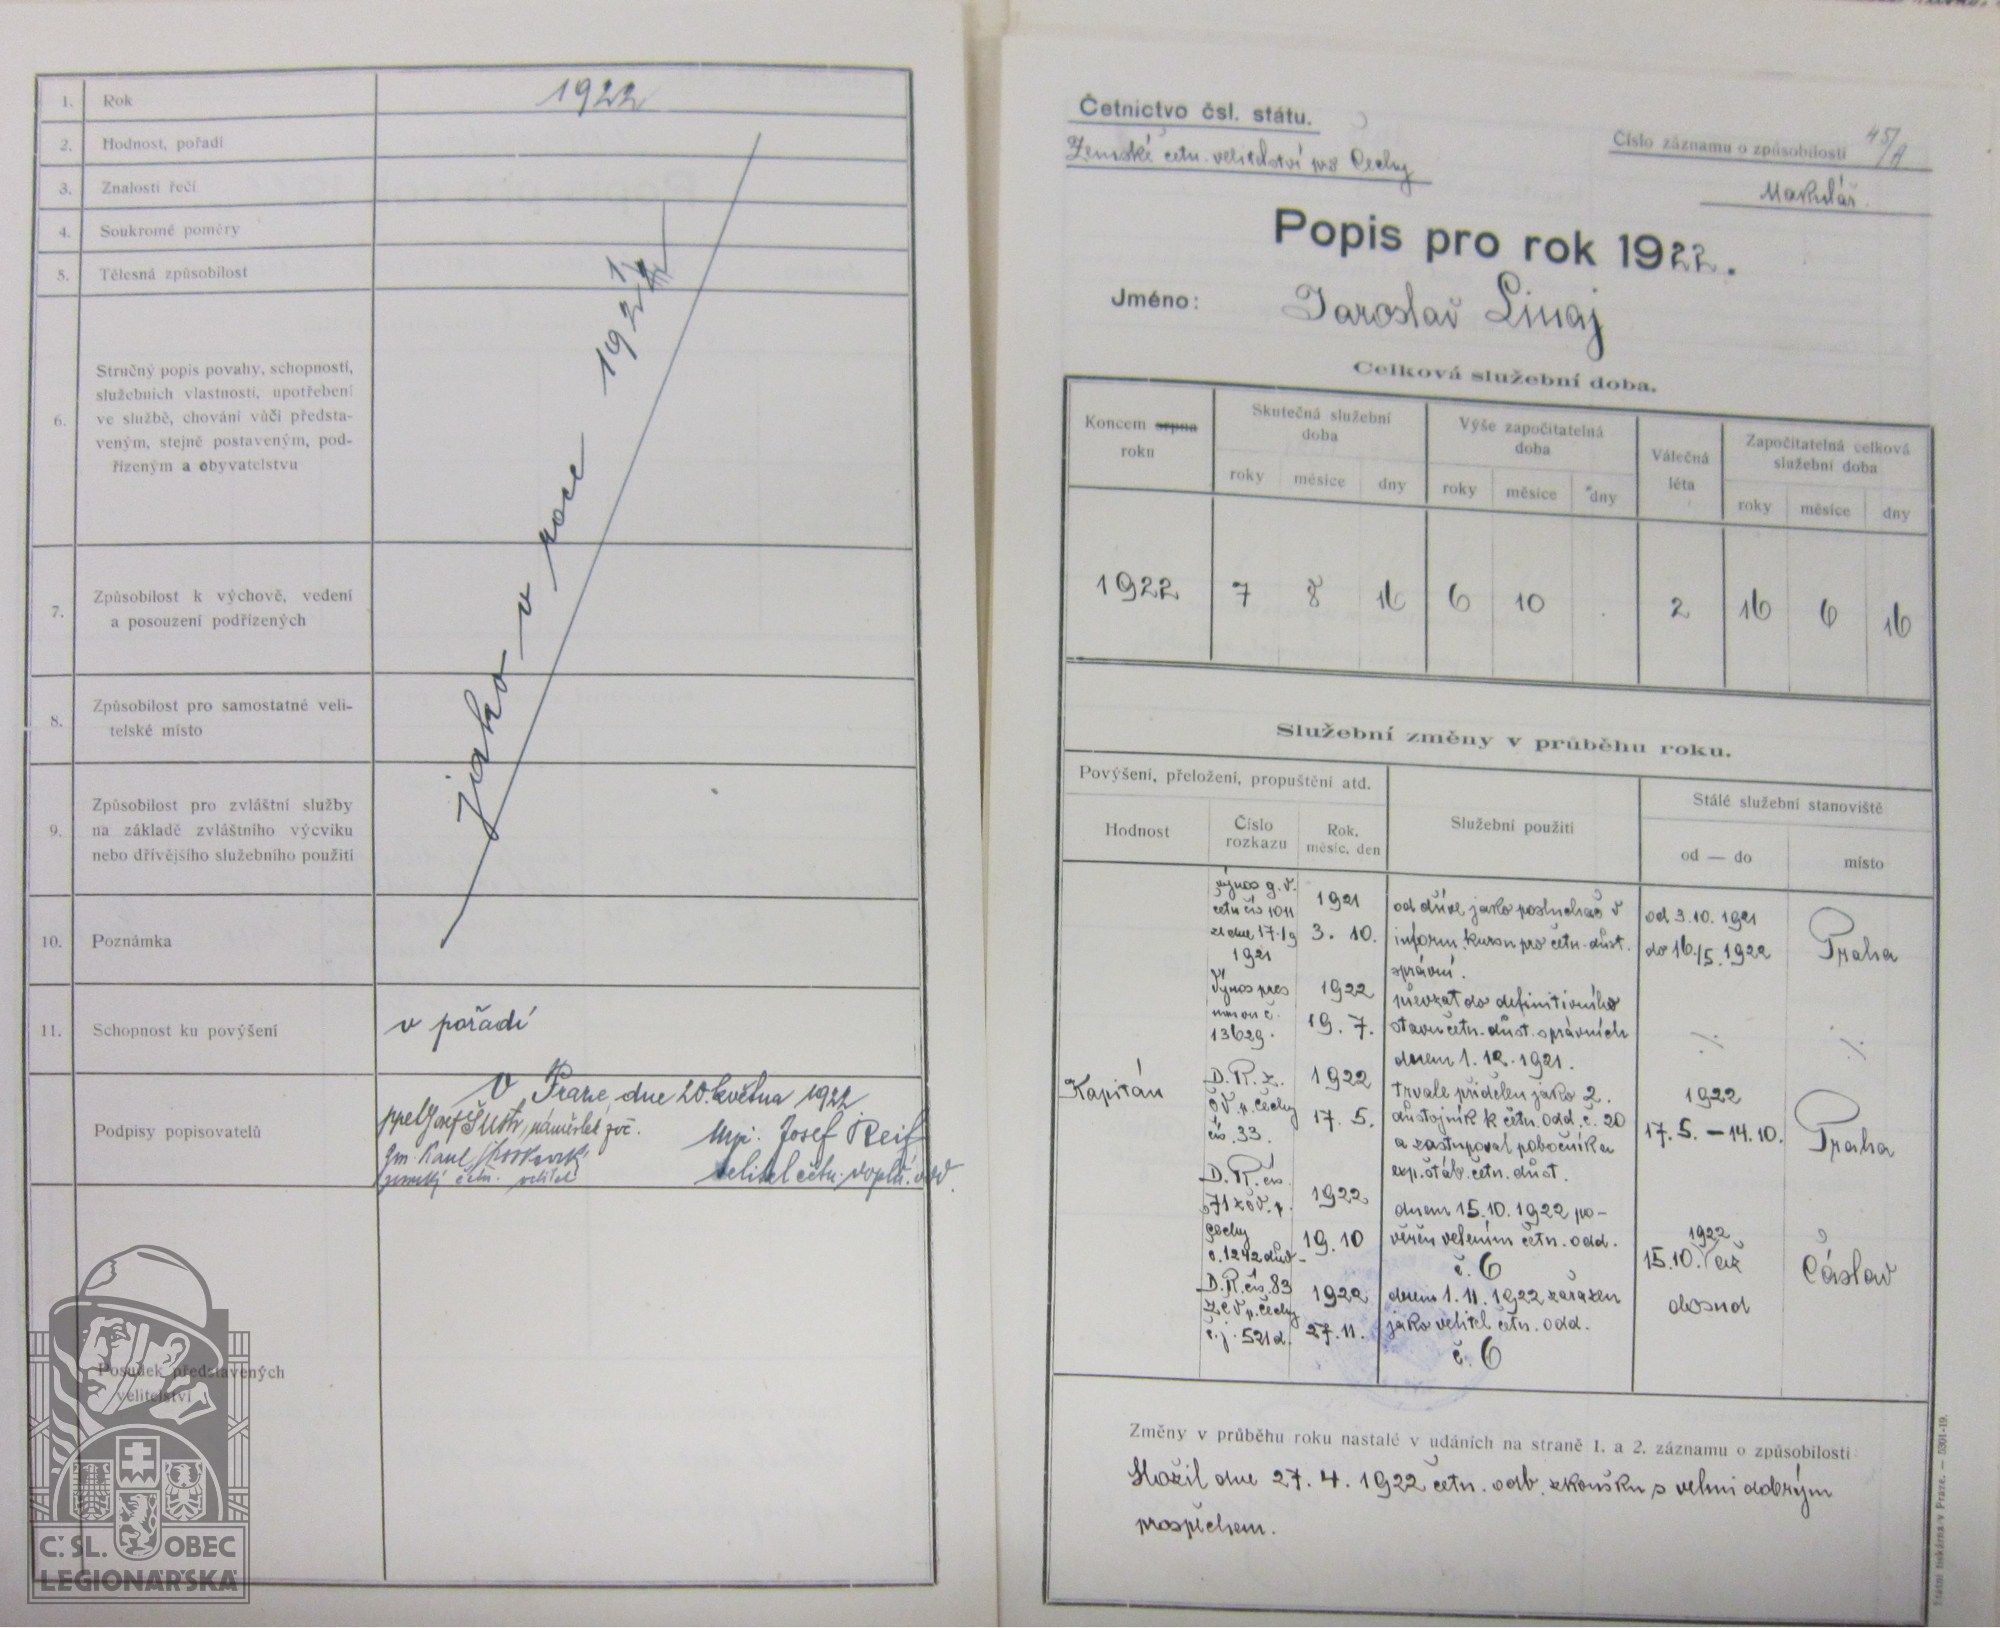 1. Rok 1922
2. Hodnost, pořadí
3. Znalosti řečí
4. Soukromé poměry
5. Tělesná způsobilost
6. Stručný popis povahy, schopností,
služebních vlastností, upotřebení
ve službě, chování vůči předsta-
veným, stejně postaveným, pod-
řízeným a obyvatelstvu
jako v roce 1921
7. Způsobilost k výchově, vedení
a posouzení podřízených
8. Způsobilost pro samostatné veli-
telské místo
9. Způsobilost pro zvláštní služby
na základě zvláštního výcviku
nebo dřívějšího služebního použití
10. Poznámka
11. Schopnost ku povýšení v pořadí
V Praze, dne 20. května 1922
Podpisy popisovatelů
pplJosef Šustr, náměstek zvč.
mjr. Josef Reif
gm. Karel
zemský četn. velitel
velitel četn. doplň. odd.
Posudek představených
velitelství
Č. SL. OBEC
LEGIONÁŘSKÁ
Četnictvo čsl. státu.
Zemské četn. velitelství pro Čechy
Číslo záznamu o způsobilosti 45/A
Popis pro rok 1922.
Jméno: Jaroslav
Celková služební doba.
Koncem srpna
roku
Skutečná služební
doba
Výše započitatelná
doba
Válečná
léta
Započitatelná celková
služební doba
roky měsíce dny roky měsíce dny roky měsíce dny
1922 7 8 16 6 10 . 2 16 6 16
Služební změny v průběhu roku.
Povýšení, přeložení, propuštění atd.
Služební použití
Stálé služební stanoviště
Hodnost
Číslo
rozkazu
Rok,
měsíc, den
od — do
místo
výnos g. v.
četn čís 1011
ze dne 17. 9
1921
1921
3. 10.
od dříve jako posluchač v
inform. kursu pro četn. důst.
správní.
od 3. 10. 1921
do 16./5. 1922
Praha
Výnos pres
min vn č.
13629.
1922
19. 7.
převzat do definitivního
stavu četn. důst. správních
dnem 1. 12. 1921.
⁒
⁒
Kapitán
D. R. z.
čv. p. Čechy
čís. 33.
1922
17. 5.
trvale přidělen jako 2.
důstojník k četn. odd. č. 20
a zastupoval pobočníka
exp. stáb. četn. důst.
1922
17. 5. – 14. 10.
Praha
D. R. čís.
71 zčv. p.
Čechy
č. 1242 důd
1922
19. 10
dnem 15. 10. 1922 po-
věřen velením četn. odd.
č. 6
1922
15. 10. až
dosud
Čáslav
D. R. čís. 83
z č v p. Čechy
č. j. 521 d.
1922
27. 11.
dnem 1. 11. 1922 zařazen
jako velitel četn. odd.
č. 6
Změny v průběhu roku nastalé v udáních na straně 1. a 2. záznamu o způsobilosti:
Složil dne 27. 4. 1922 četn. odb. zkoušku s velmi dobrým
prospěchem.
Státní tiskárna v Praze. — 5301-19.